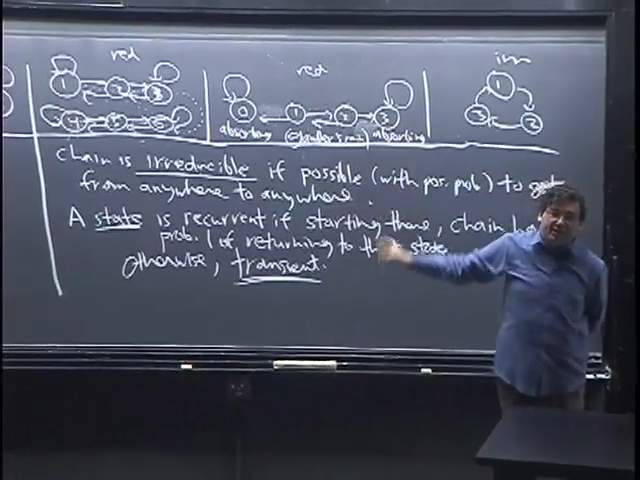 red
red
irr
1 2 3
4 5 6
0 1 2 3
1
3 2
absorbing (Gambler's ruin) absorbing
chain is irreducible if possible (with pos. prob) to get
from anywhere to anywhere.
A state is recurrent if starting there, chain has
prob. 1 of returning to that state.
Otherwise, transient.